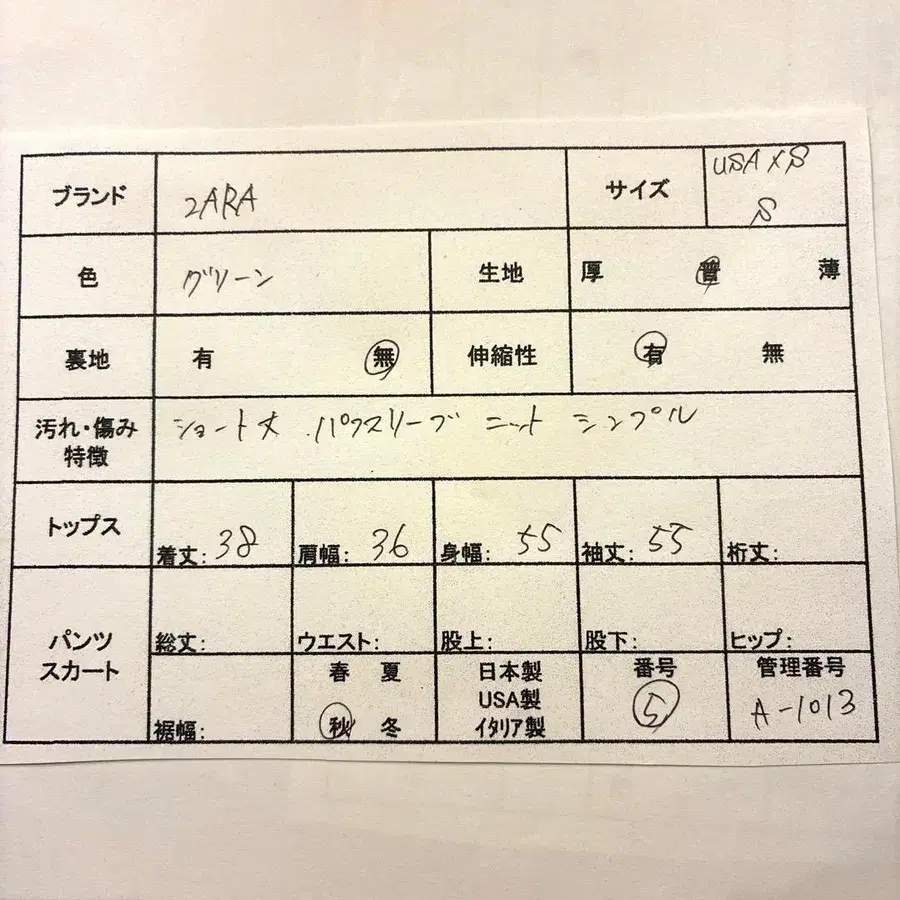 ブランド 2ARA サイズ USA XS
S
色 グリーン 生地 厚 普 薄
裏地 有 無 伸縮性 有 無
汚れ・傷み
特徴
ショート丈 パフスリーブ ニット シンプル
トップス 着丈: 38 肩幅: 36 身幅: 55 袖丈: 55 裄丈:
パンツ
スカート
総丈: ウエスト: 股上: 股下: ヒップ:
裾幅:
春 夏
秋 冬
日本製
USA製
イタリア製
番号
5
管理番号
A-1013